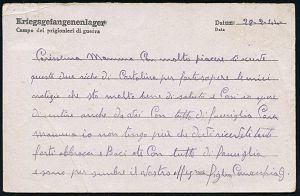 Kriegsgefangenenlager
Campo dei prigionieri di guerra
Datum: 20-2-44
Carissima Mamma Con molto piacere ti scrivo
queste due righe di Cartolina per farti sapere le mie
notizie che sto molto bene di salute e Così
di tutti
anche da te Con tutti di famiglia Cara
mamma io non tengo più che dirti ricevi tanti
forte abbracci e Baci da Con tutti di famiglia
e sono per sempre il vostro aff figlio